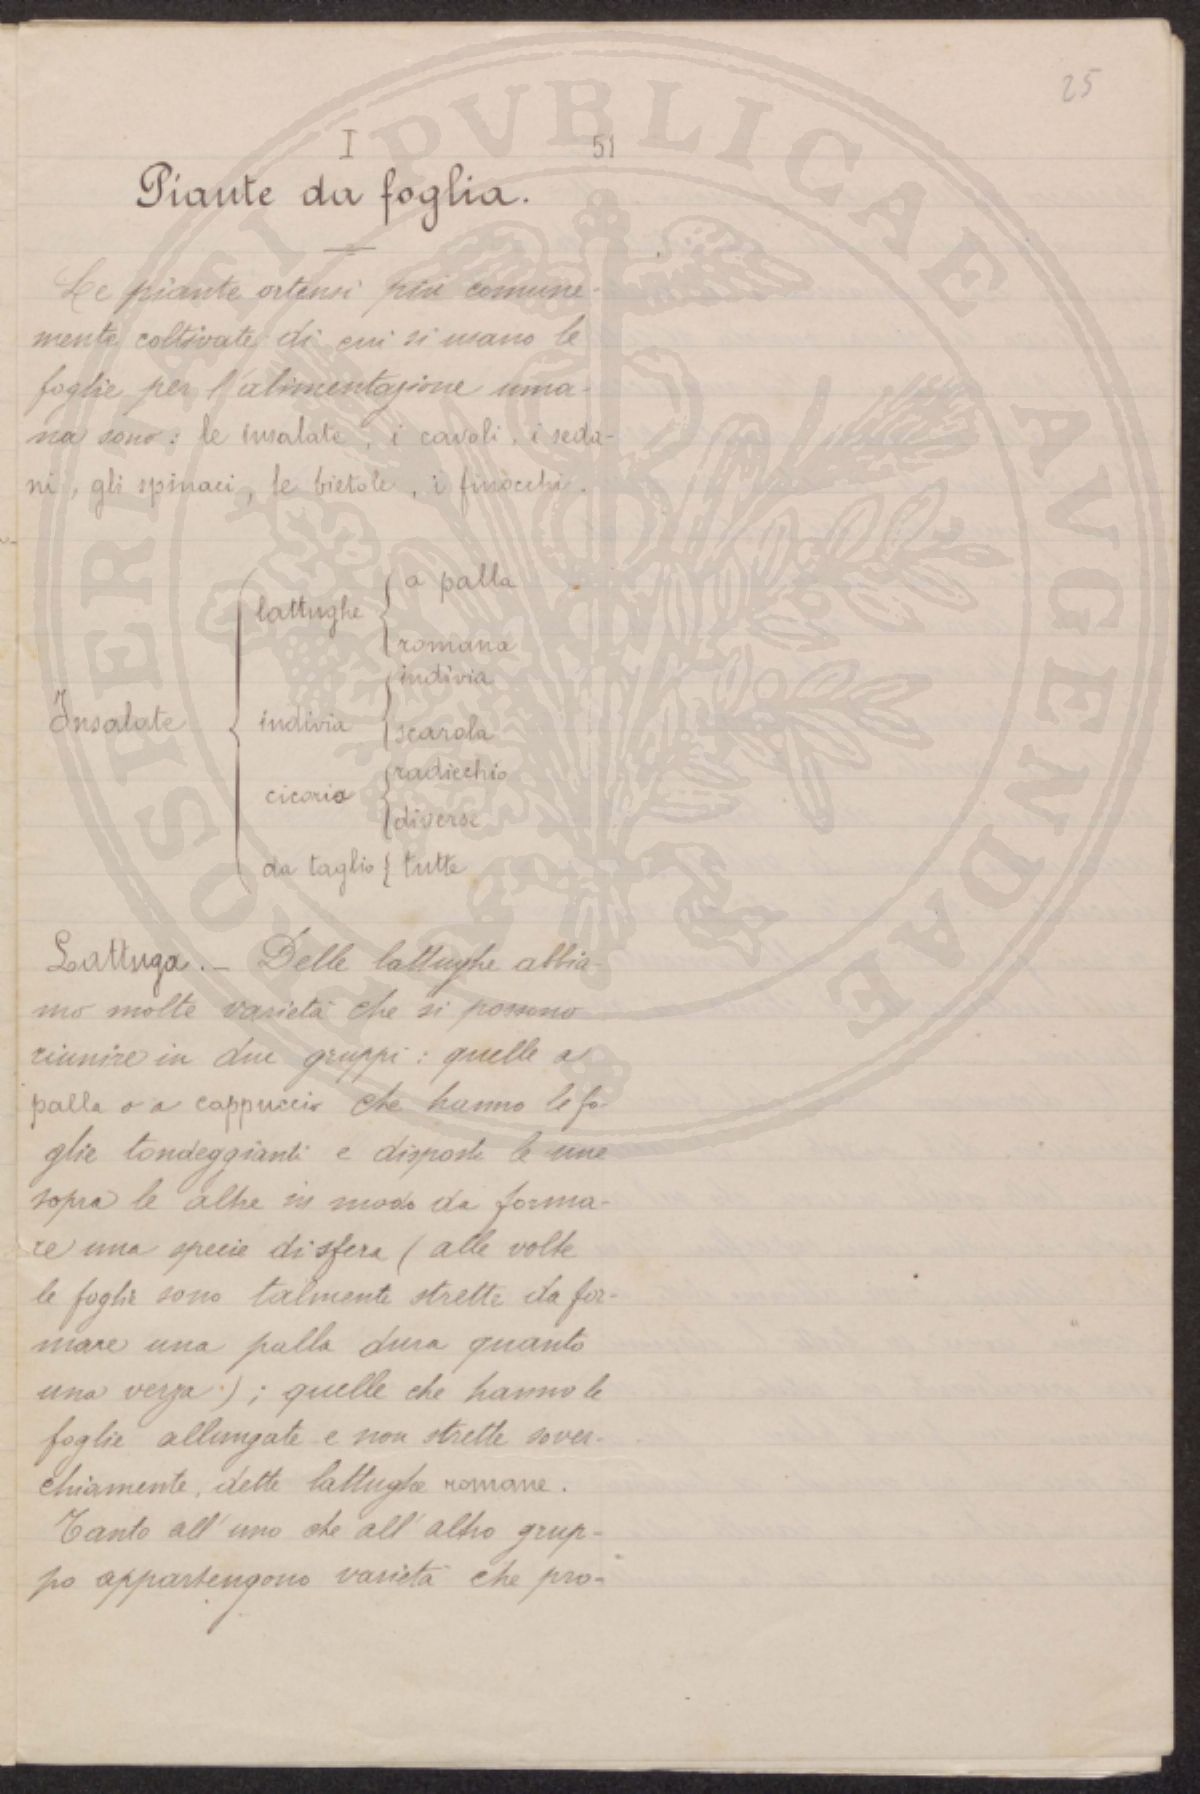 25
I
51
Piante da foglia.
Le piante ortensi più comune-
mente coltivate di cui si usano le
foglie per l'alimentazione uma-
na sono: le insalate, i cavoli, i seda-
ni, gli spinaci, le bietole, i finocchi.
Insalate
lattughe { a palla
romana
indivia { indivia
scarola
cicoria { radicchio
diverse
da taglio { tutte
Lattuga. - Delle lattughe abbia-
mo molte varietà che si possono
riunire in due gruppi: quelle a
palla o a cappuccio che hanno le fo-
glie tondeggianti e disposte le une
sopra le altre in modo da forma-
re una specie di sfera (alle volte
le foglie sono talmente strette da for-
mare una palla dura quanto
una verza); quelle che hanno le
foglie allungate e non strette sover-
chiamente, dette lattughe romane.
Tanto all'uno che all'altro grup-
po appartengono varietà che pro-
PROSPERITATI PVBLICAE AVGENDAE